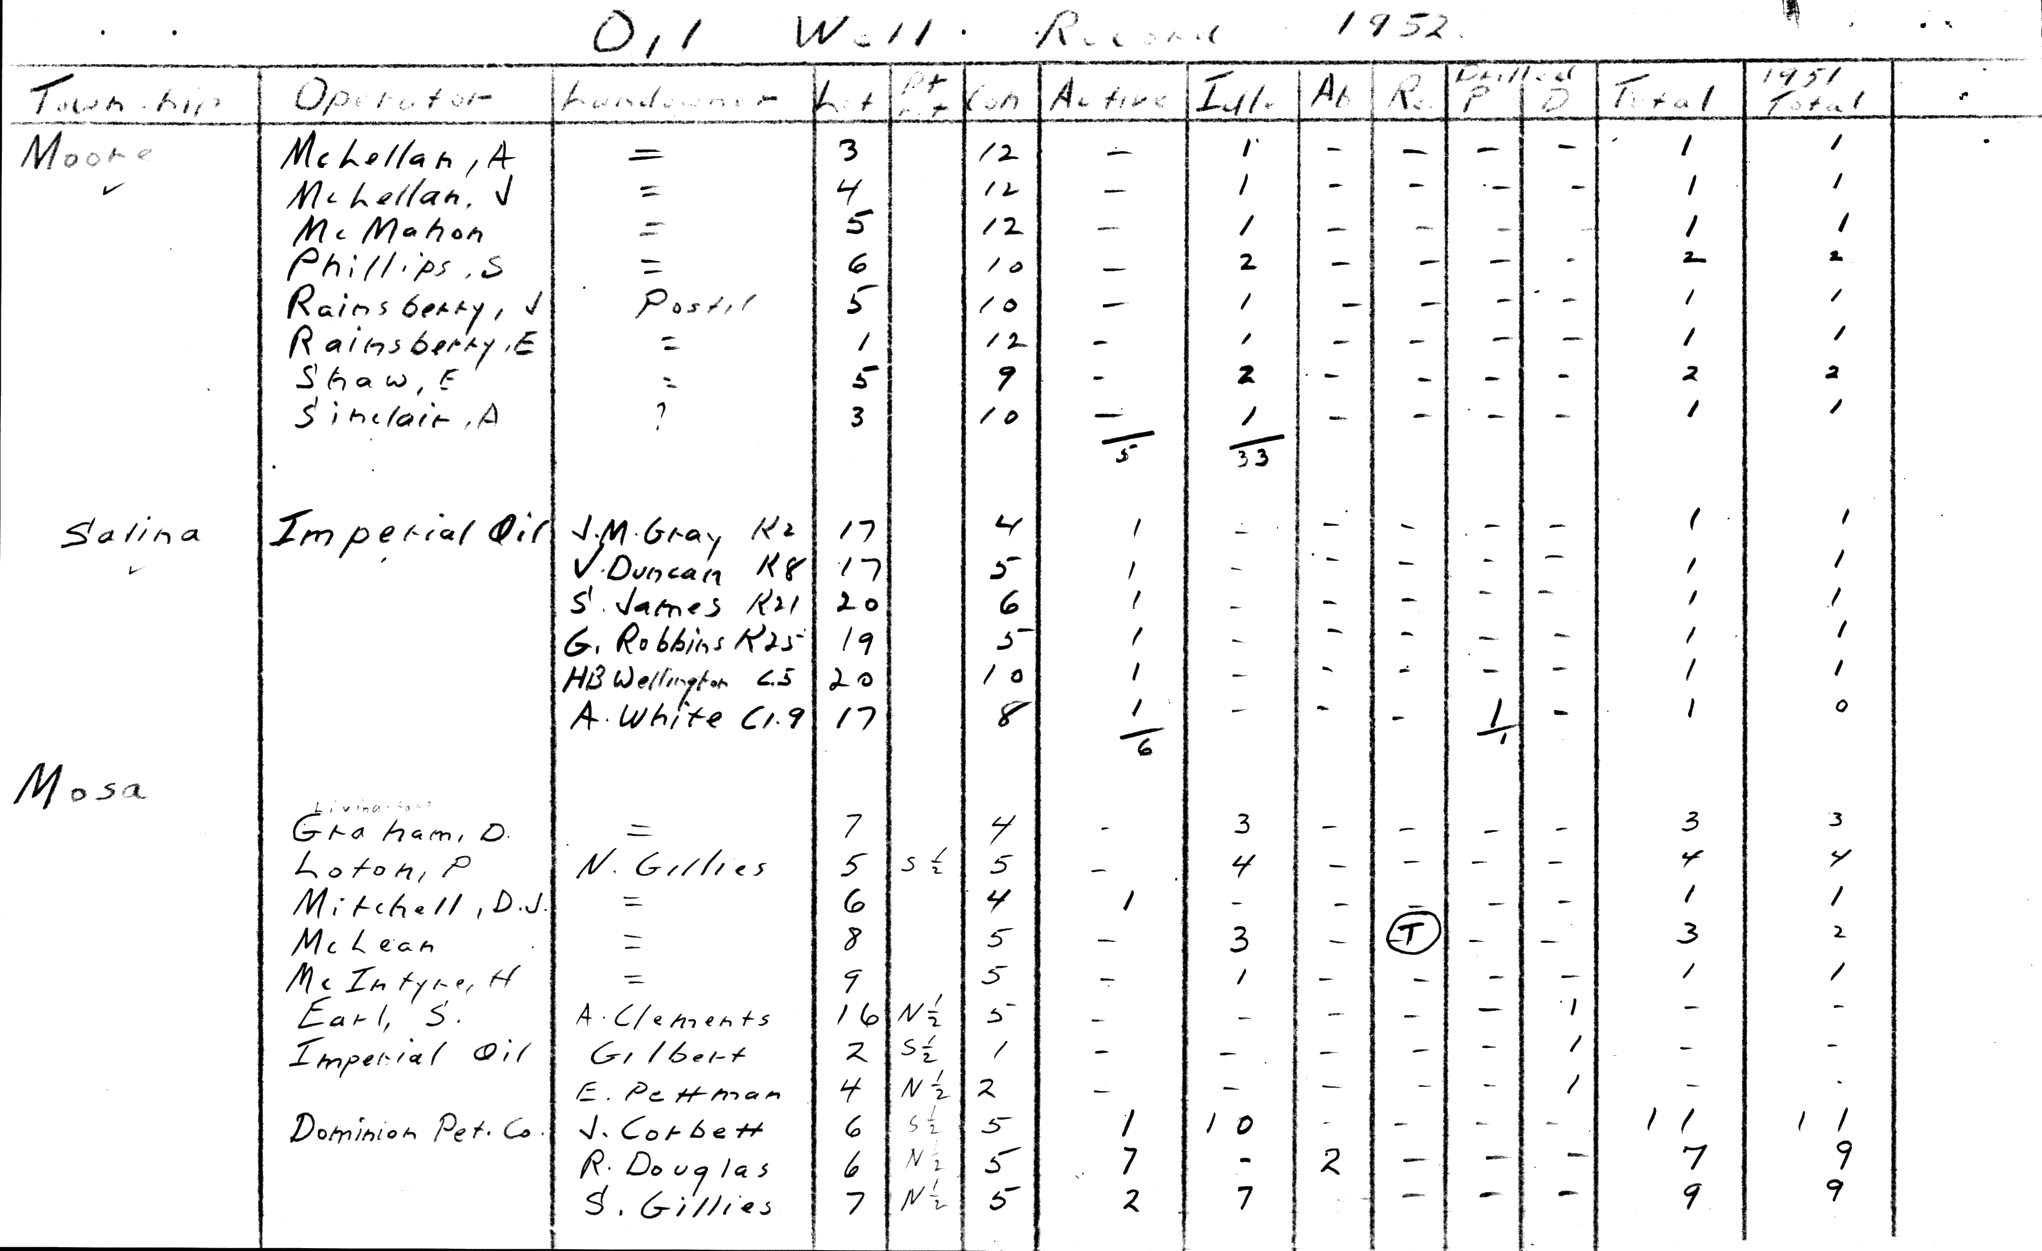 Oil Well Record 1952.
Township Operator Landowner Lot Pt Lot Con Active Idle Ab Re Drilled P D Total 1951 Total
Moore McLellan, A = 3 12 - 1 - - - - 1 1
McLellan, J = 4 12 - 1 - - - - 1 1
McMahon = 5 12 - 1 - - - - 1 1
Phillips, S = 6 10 - 2 - - - - 2 2
Rainsberry, J Postil 5 10 - 1 - - - - 1 1
Rainsberry, E = 1 12 - 1 - - - - 1 1
Shaw, E = 5 9 - 2 - - - - 2 2
Sinclair, A ? 3 10 - 1 - - - - 1 1
5 33
Salina Imperial Oil J.M. Gray K2 17 4 1 - - - - - 1 1
J. Duncan K8 17 5 1 - - - - - 1 1
S. James K21 20 6 1 - - - - - 1 1
G. Robbins K25 19 5 1 - - - - - 1 1
HB Wellington C.5 20 10 1 - - - - - 1 1
A. White C1.9 17 8 1 - - - 1 - 1 0
6 1
Mosa
Livingstone
Graham, D. = 7 4 - 3 - - - - 3 3
Loton, P N. Gillies 5 S½ 5 - 4 - - - - 4 4
Mitchell, D.J. = 6 4 1 - - - - - 1 1
McLean = 8 5 - 3 - T - - 3 2
McIntyre, H = 9 5 - 1 - - - - 1 1
Earl, S. A. Clements 16 N½ 5 - - - - - 1 - -
Imperial Oil Gilbert 2 S½ 1 - - - - - 1 - -
E. Pettman 4 N½ 2 - - - - - 1 - -
Dominion Pet. Co. J. Corbett 6 S½ 5 1 10 - - - - 11 11
R. Douglas 6 N½ 5 7 - 2 - - - 7 9
S. Gillies 7 N½ 5 2 7 - - - 9 9